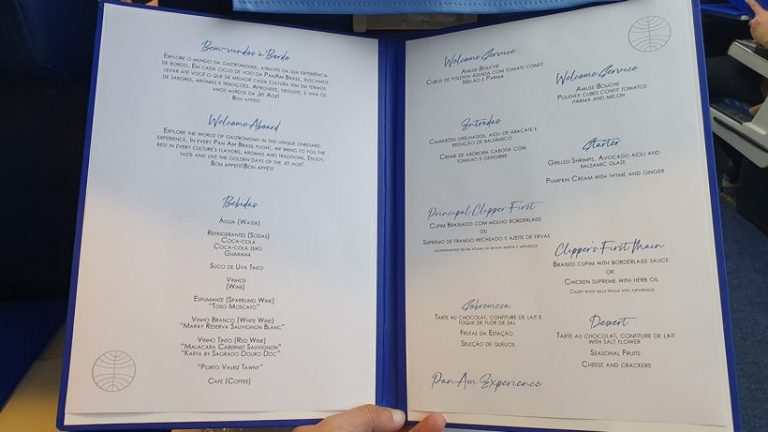 Bem-vindos à Bordo
Explore o mundo da gastronomia, através da sua experiência
de bordo. Em cada ciclo de voo da Pan Am Brasil, buscamos
levar até você o que de melhor cada cultura tem em termos
de sabores, aromas e tradições. Aproveite, deguste, e viva os
anos áureos da Jet Age!
Bon appétit
Welcome Aboard
Explore the world of gastronomy in this unique onboard
experience. In every Pan Am Brasil flight, we bring to you the
best in every culture's flavors, aromas and traditions. Enjoy,
taste and live the golden days of the Jet Age!
Bon appétit!Bon appétit
Bebidas
Água (Water)
Refrigerantes (Sodas)
Coca-cola
Coca-cola zero
Guaraná
Suco de Uva Tinto
Vinhos
(Wine)
Espumante (Sparkling Wine)
"Toso Moscato"
Vinho Branco (White Wine)
"Maray Reserva Sauvignon Blanc"
Vinho Tinto (Red Wine)
"Malacara Cabernet Sauvignon"
"Karta by Sagrado Douro Doc"
"Porto Valriz Tawny"
Café (Coffee)
Welcome Service
Amuse Bouche
Cubos de polenta assada com tomate confit
Melão e Parma
Entradas
Camarões grelhados, aioli de abacate e
redução de balsâmico
Creme de abóbora cabotá com
tomilho e gengibre
Principal Clipper First
Cupim Braseado com molho borderlaise
ou
Supremo de frango recheado e azeite de ervas
Sobremesa
Tarte au chocolat, confiture de lait e
toque de flor de sal
Frutas da Estação
Seleção de queijos
Pan Am Experience
Welcome Service
Amuse Bouche
Polenta cubes confit tomatos
parma and melon
Starter
Grilled Shrimps, Avocado aiou and
balsamic glaze
Pumpkin Cream with thyme and ginger
Clippers First Main
Braised cupim with borderlaise sauce
or
Chicken supreme with herb oil
Celery-root mille feuille with asparagus
Dessert
Tarte au chocolat, confiture de lait
with salt flower
Seasonal Fruits
Cheese and crackers